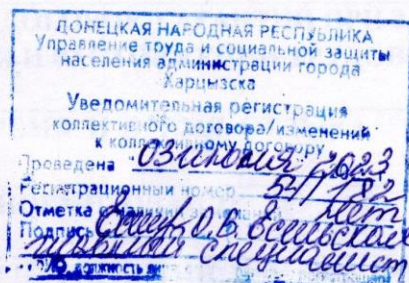 ДОНЕЦКАЯ НАРОДНАЯ РЕСПУБЛИКА
Управление труда и социальной защиты
населения администрации города
Харцызска
Уведомительная регистрация
коллективного договора/изменений
к коллективному договору
Проведена "03" июля 2023
Регистрационный номер 182
Отметка нет
Подпись О.В.
главный специалист
должность